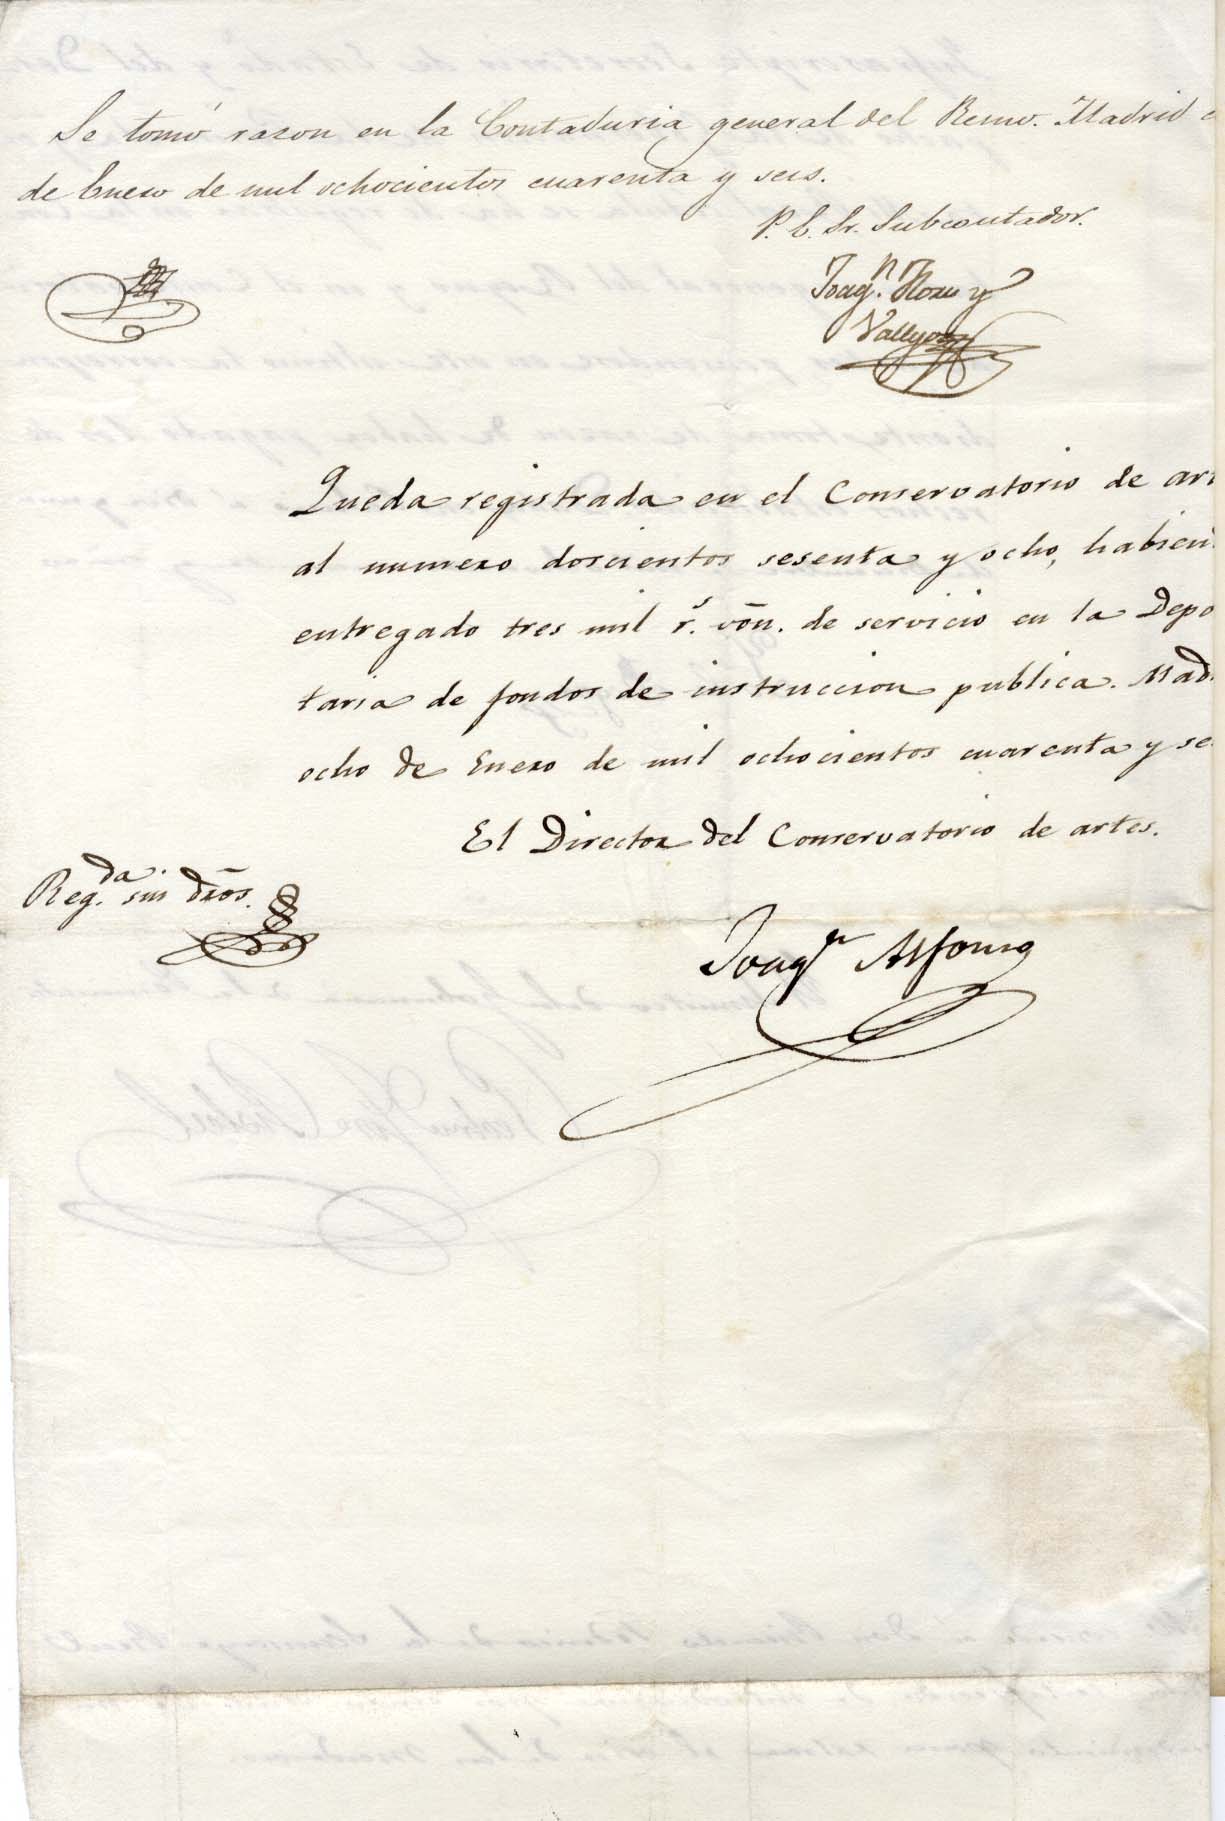 Se tomó razon en la Contaduria general del Reino. Madrid
de Enero de mil ochocientos cuarenta y seis.
P. E. Sr. Subcontador.
Joaq.n Flores y
Vallejo
Queda registrada en el Conservatorio de art
al numero doscientos sesenta y ocho, habien
entregado tres mil r.s von. de servicio en la Depo
taria de fondos de instruccion publica. Mad
ocho de Enero de mil ochocientos cuarenta y se
El Director del Conservatorio de artes.
Reg.da sin dros.
Joaqn Alfonso